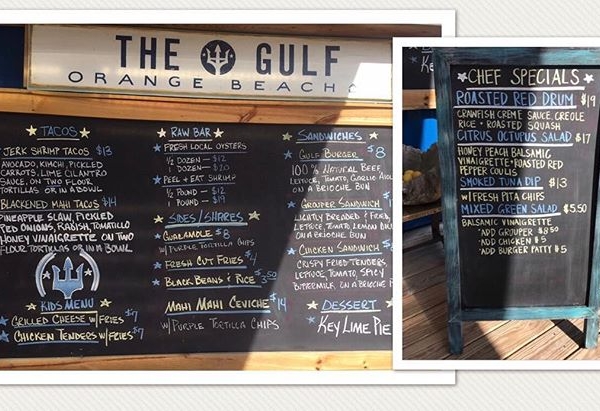 THE GULF
ORANGE BEACH
TACOS
JERK SHRIMP TACOS $13
AVOCADO, KIMCHI, PICKLED
CARROTS, LIME CILANTRO
SAUCE, ON TWO FLOUR
TORTILLAS OR IN A BOWL
BLACKENED MAHI TACOS $14
PINEAPPLE SLAW, PICKLED
RED ONIONS, RADISH, TOMATILLO
HONEY VINAIGRETTE ON TWO
FLOUR TORTILLAS OR IN A BOWL
KIDS MENU
GRILLED CHEESE W/FRIES $7
CHICKEN TENDERS W/FRIES $7
RAW BAR
FRESH LOCAL OYSTERS
1/2 DOZEN — $12
1 DOZEN — $20
PEEL & EAT SHRIMP
1/2 POUND — $12
1 POUND — $19
SIDES/SHARES
GUACAMOLE $8
W/PURPLE TORTILLA CHIPS
FRESH CUT FRIES $4
BLACK BEANS & RICE $3.50
MAHI MAHI CEVICHE $14
W/ PURPLE TORTILLA CHIPS
SANDWICHES
GULF BURGER $8
100% NATURAL BEEF
LETTUCE, TOMATO, GARLIC
ON A BRIOCHE BUN
GROUPER SANDWICH
LIGHTLY BREADED & FRIED
LETTUCE, TOMATO LEMON
ON A BRIOCHE BUN
CHICKEN SANDWICH
CRISPY FRIED TENDERS,
LETTUCE, TOMATO, SPICY
BUTTERMILK ON A BRIOCHE
DESSERT
KEY LIME PIE
CHEF SPECIALS
ROASTED RED DRUM $19
CRAWFISH CREME SAUCE, CREOLE
RICE + ROASTED SQUASH
CITRUS OCTOPUS SALAD $17
HONEY PEACH BALSAMIC
VINAIGRETTE + ROASTED RED
PEPPER COULIS
SMOKED TUNA DIP $13
W/FRESH PITA CHIPS
MIXED GREEN SALAD $5.50
BALSAMIC VINAIGRETTE
*ADD GROUPER $8.50
*ADD CHICKEN $5
*ADD BURGER PATTY $5